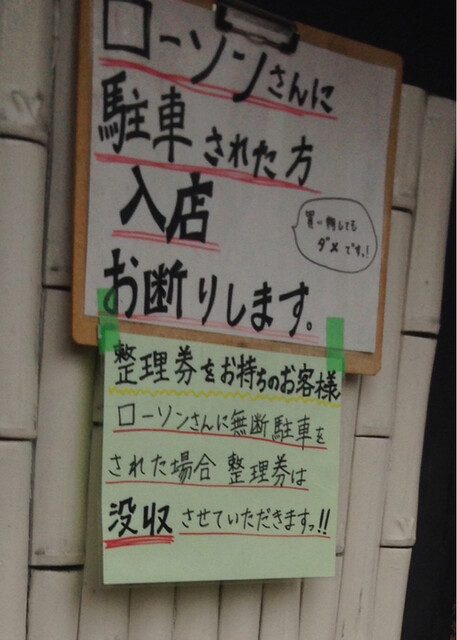 ローソンさんに
駐車された方
入店
お断りします。
買い物しても
ダメです。!
整理券をお持ちのお客様
ローソンさんに無断駐車を
された場合 整理券は
没収させていただきますッ!!